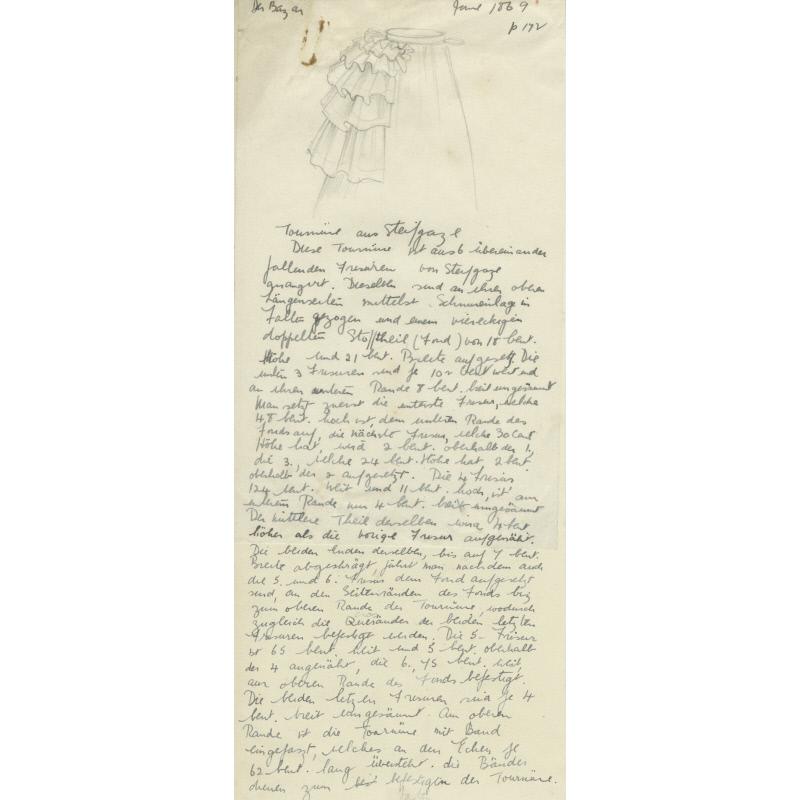 Der Bazar June 1869
p 172
Tournüre aus Steifgaze
Diese Tournüre ist aus 6 übereinander
fallenden Frisuren von Steifgaze
arrangirt. Dieselben sind an ihren oberen
Längenseiten mittelst Schnureinlage in
Falten gezogen und einem viereckigen
doppelten Stofftheil (Fond) von 18 Cent.
Höhe und 21 Cent. Breite aufgesetzt. Die
ersten 3 Frisuren sind je 102 Cent weit und
an ihren unteren Rande 8 Cent. breit umgesäumt
Man setzt zuerst die unterste Frisur, welche
48 Cent. hoch ist, dem unteren Rande des
Fonds auf, die nächste Frisur, welche 30 Cent
Höhe hat, wird 2 Cent. oberhalb der 1,
die 3., welche 24 Cent. Höhe hat 2 Cent.
oberhalb der 2 aufgesetzt. Die 4 Frisur
124 Cent. weit und 11 Cent. hoch, ist am
unteren Rande nur 4 Cent. breit umgesäumt
Der mittlere Theil derselben wird 4 Cent
höher als die vorige Frisur aufgesetzt.
Die beiden Enden derselben, bis auf 7 Cent.
Breite abgeschrägt, führt man nachdem auch
die 5. und 6. Frisur dem Fond aufgesetzt
sind, an den Seitenrändern des Fonds bis
zum oberen Rande der Tournüre, wodurch
zugleich die Queränder der beiden letzten
Frisuren befestigt werden. Die 5. Frisur
ist 65 Cent. weit und 5 Cent. oberhalb
der 4 angenäht, die 6., 45 Cent. weit,
am oberen Rande des Fonds befestigt.
Die beiden letzten Frisuren sind je 4
Cent. breit umgesäumt. Am oberen
Rande ist die Tournüre mit Band
eingefasst, welches an den Ecken je
62 Cent. lang übersteht. die Bänder
dienen zum befestigen der Tournüre.